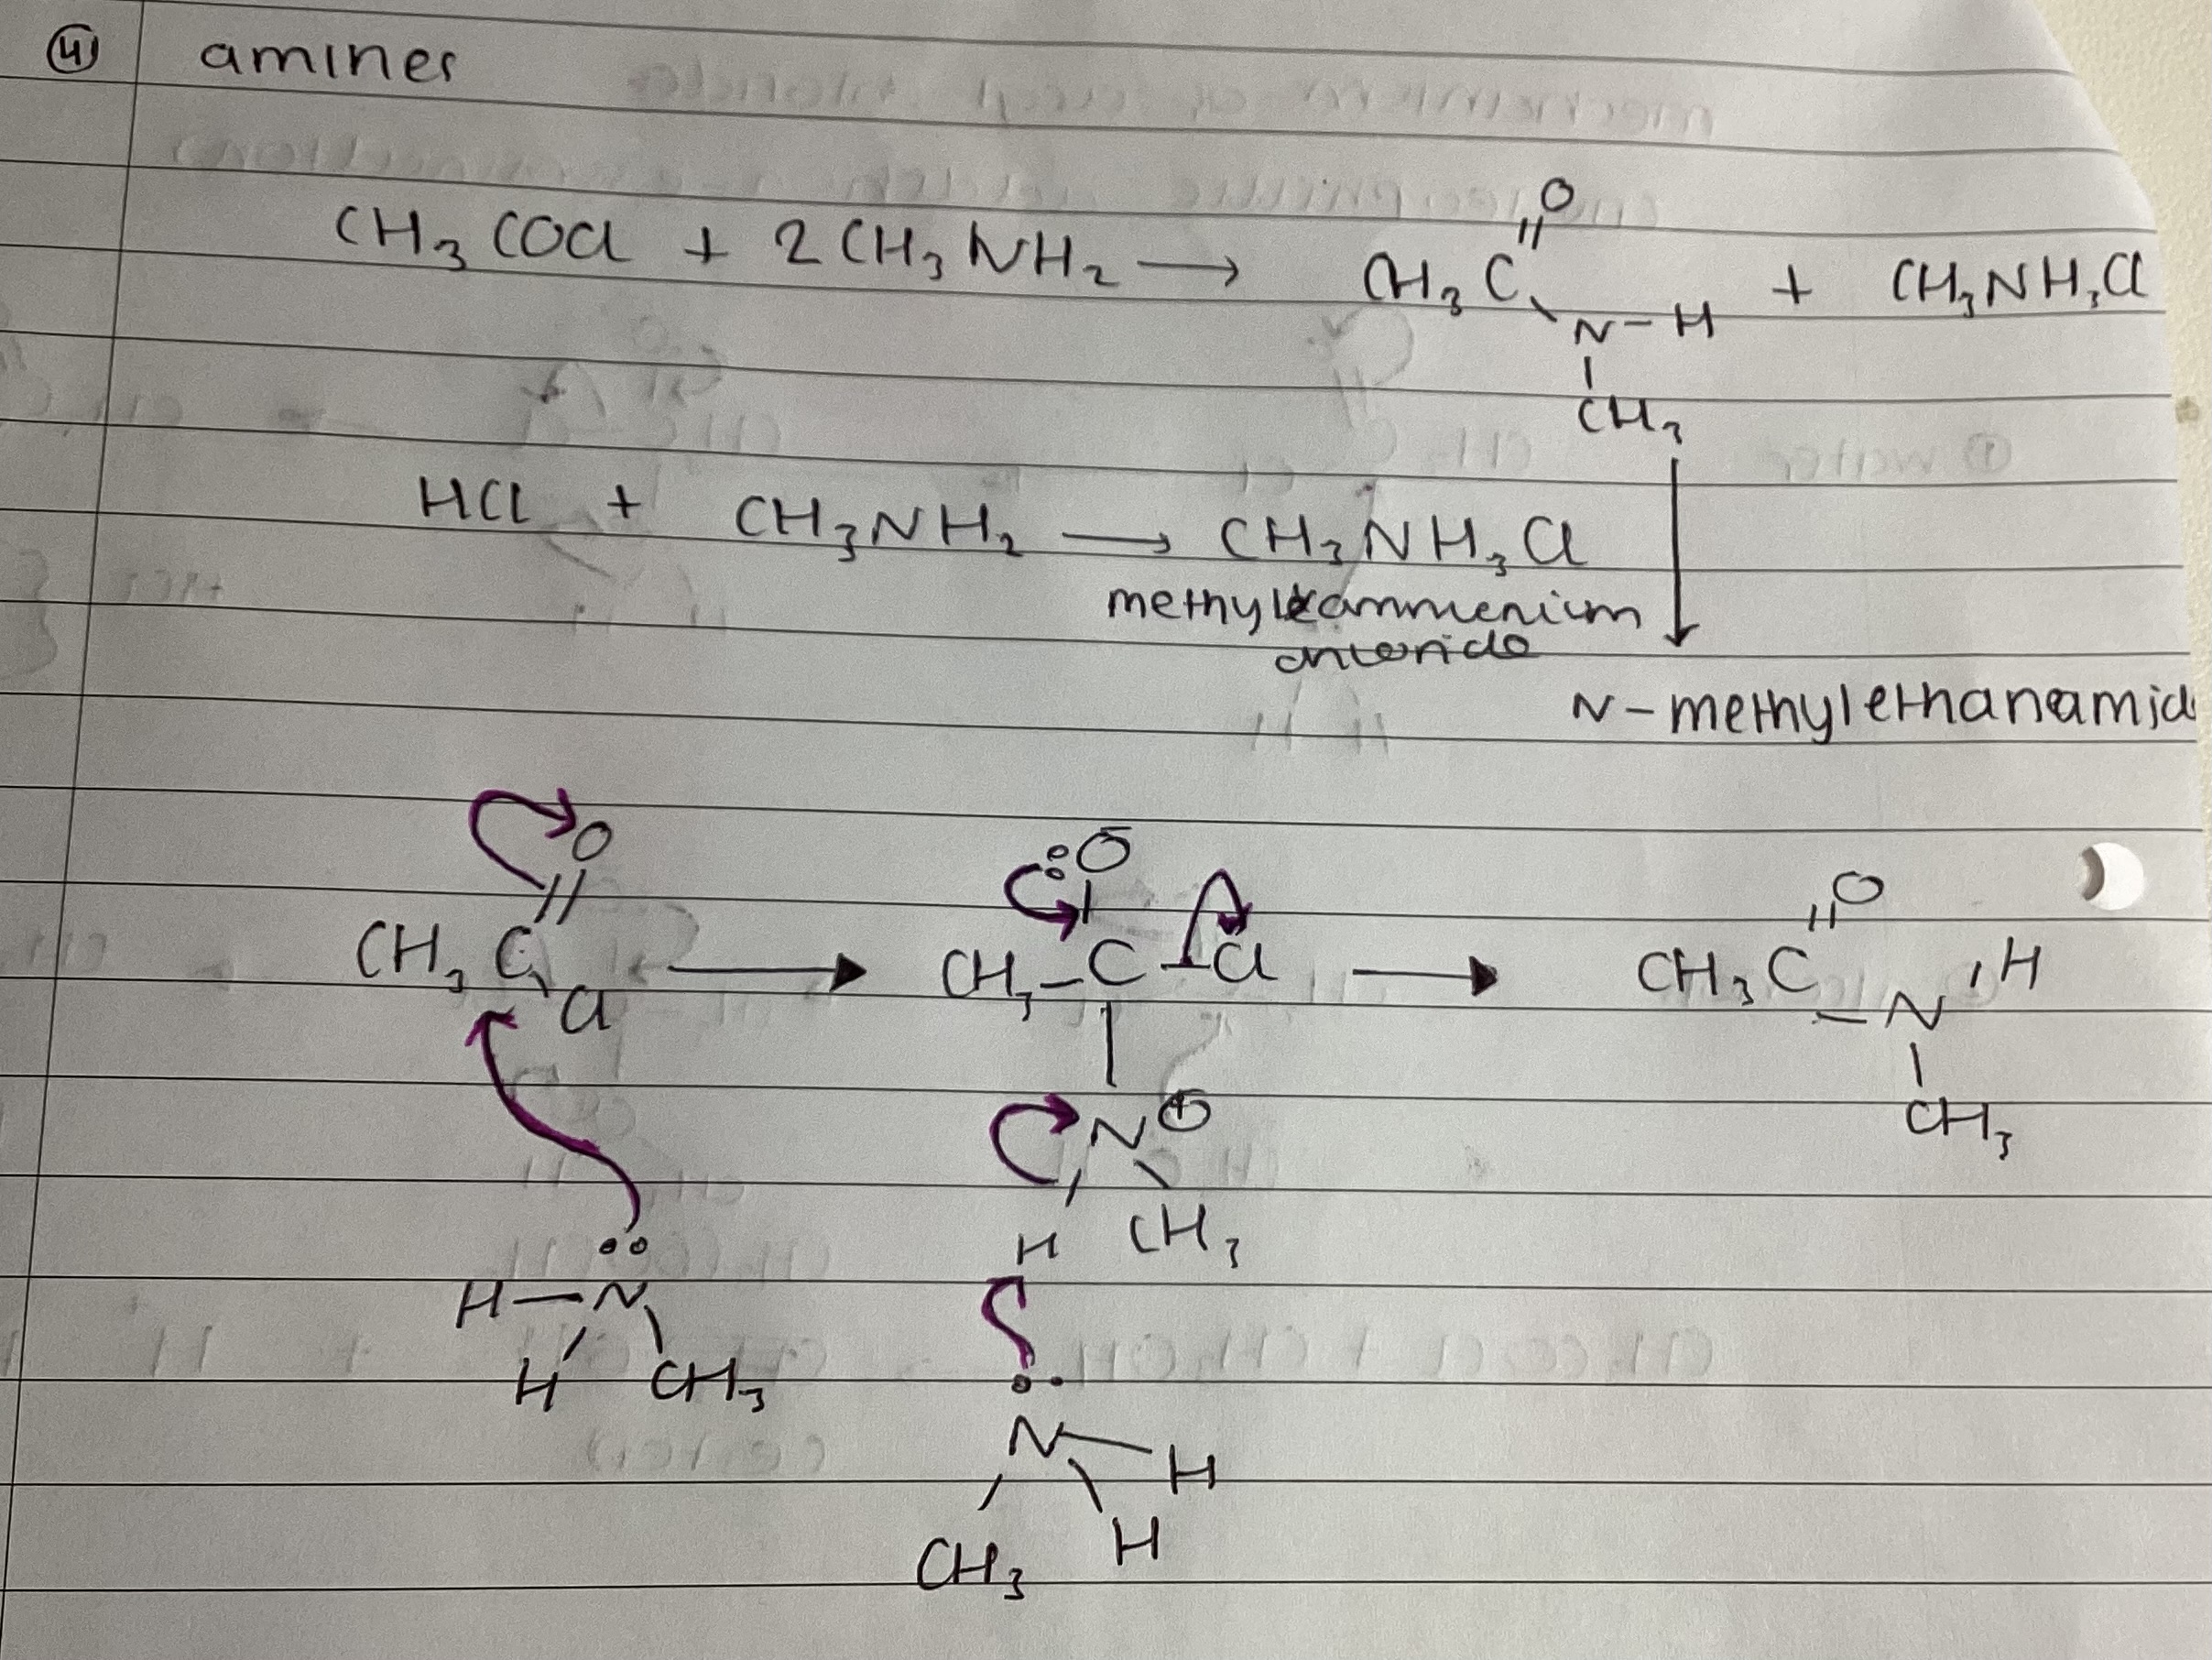 ④ amines
CH₃COCl + 2CH₃NH₂ ⟶ CH₃C
O
N-H
CH₃
+ CH₃NH₃Cl
HCl + CH₃NH₂ ⟶ CH₃NH₃Cl
methylammonium
chloride
N-methylethanamid
O
CH₃C
Cl
:O⁻
CH₃-C-Cl
N⊕
H CH₃
O
CH₃C
N H
CH₃
H-N
H CH₃
N
H
CH₃ H